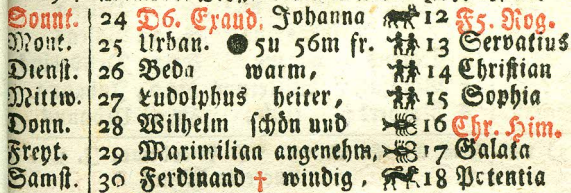 Sonnt. 24 D6. Exaud. Johanna 12 F5. Rog.
Mont. 25 Urban. 5u 56m fr. 13 Servatius
Dienst. 26 Beda warm, 14 Christian
Mittw. 27 Ludolphus heiter, 15 Sophia
Donn. 28 Wilhelm schön und 16 Chr. Him.
Freyt. 29 Maximilian angenehm, 17 Galata
Samst. 30 Ferdinand † windig, 18 Potentia